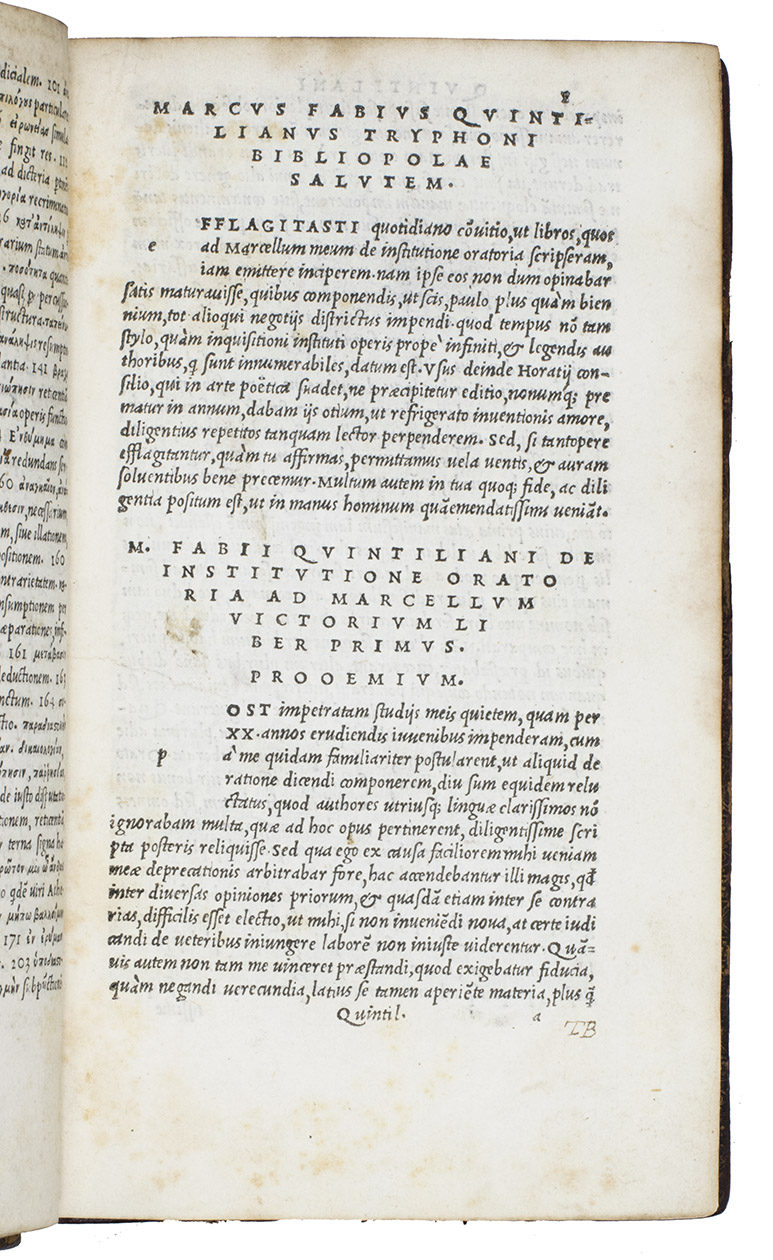 dicialem. 101
particula
simula
fingit res.
ad dicteria
recriminat
rarium statum
quasi
structura.
resumpti
lantia. 141
retic
operis functi
redundans
necessarium
m, siue illationem,
positionem. 160
ontrarietatem.
nsumptionem per
æparationes
161
eductionem. 163
nctum. 164
de iusto disputatio
tionem, reticentia
terna signa
viri Athe
171 ἐν
. 203
MARCVS FABIVS QVINTI-
LIANVS TRYPHONI
BIBLIOPOLAE
SALVTEM.
FFLAGITASTI quotidiano cõuitio, ut libros, quos
e ad Marcellum meum de institutione oratoria scripseram,
iam emittere inciperem. nam ipse eos non dum opinabar
satis maturauisse, quibus componendis, ut scis, paulo plus quàm bien
nium, tot alioqui negotijs districtus impendi. quod tempus nõ tam
stylo, quàm inquisitioni instituti operis propè infiniti, & legendis au
thoribus, q̃ sunt innumerabiles, datum est. Vsus deinde Horatij con-
silio, qui in arte poëtica suadet, ne præcipitetur editio, nonumq; pre
matur in annum, dabam ijs otium, ut refrigerato inuentionis amore,
diligentius repetitos tanquam lector perpenderem. Sed, si tantopere
efflagitantur, quàm tu affirmas, permittamus uela uentis, & auram
soluentibus bene precemur. Multum autem in tua quoq; fide, ac dili
gentia positum est, ut in manus hominum quàemendatissimi ueniãt.
M. FABII QVINTILIANI DE
INSTITVTIONE ORATO
RIA AD MARCELLVM
VICTORIVM LI
BER PRIMVS.
PROOEMIVM.
OST impetratam studijs meis quietem, quam per
XX. annos erudiendis iuuenibus impenderam, cum
p à me quidam familiariter postularent, ut aliquid de
ratione dicendi componerem, diu sum equidem relu
ctatus, quod authores utriusq; linguæ clarissimos nõ
ignorabam multa, quæ ad hoc opus pertinerent, diligentissime scri
pta posteris reliquisse. Sed qua ego ex causa faciliorem mihi ueniam
meæ deprecationis arbitrabar fore, hac accendebantur illi magis, qd̃
inter diuersas opiniones priorum, & quasdã etiam inter se contra
rias, difficilis esset electio, ut mihi, si non inueniẽdi noua, at certe iudi
candi de ueteribus iniungere laborẽ non iniuste uiderentur. Quã-
uis autem non tam me uinceret præstandi, quod exigebatur fiducia,
quàm negandi uerecundia, latius se tamen aperiẽte materia, plus q̃
Quintil. a
TB